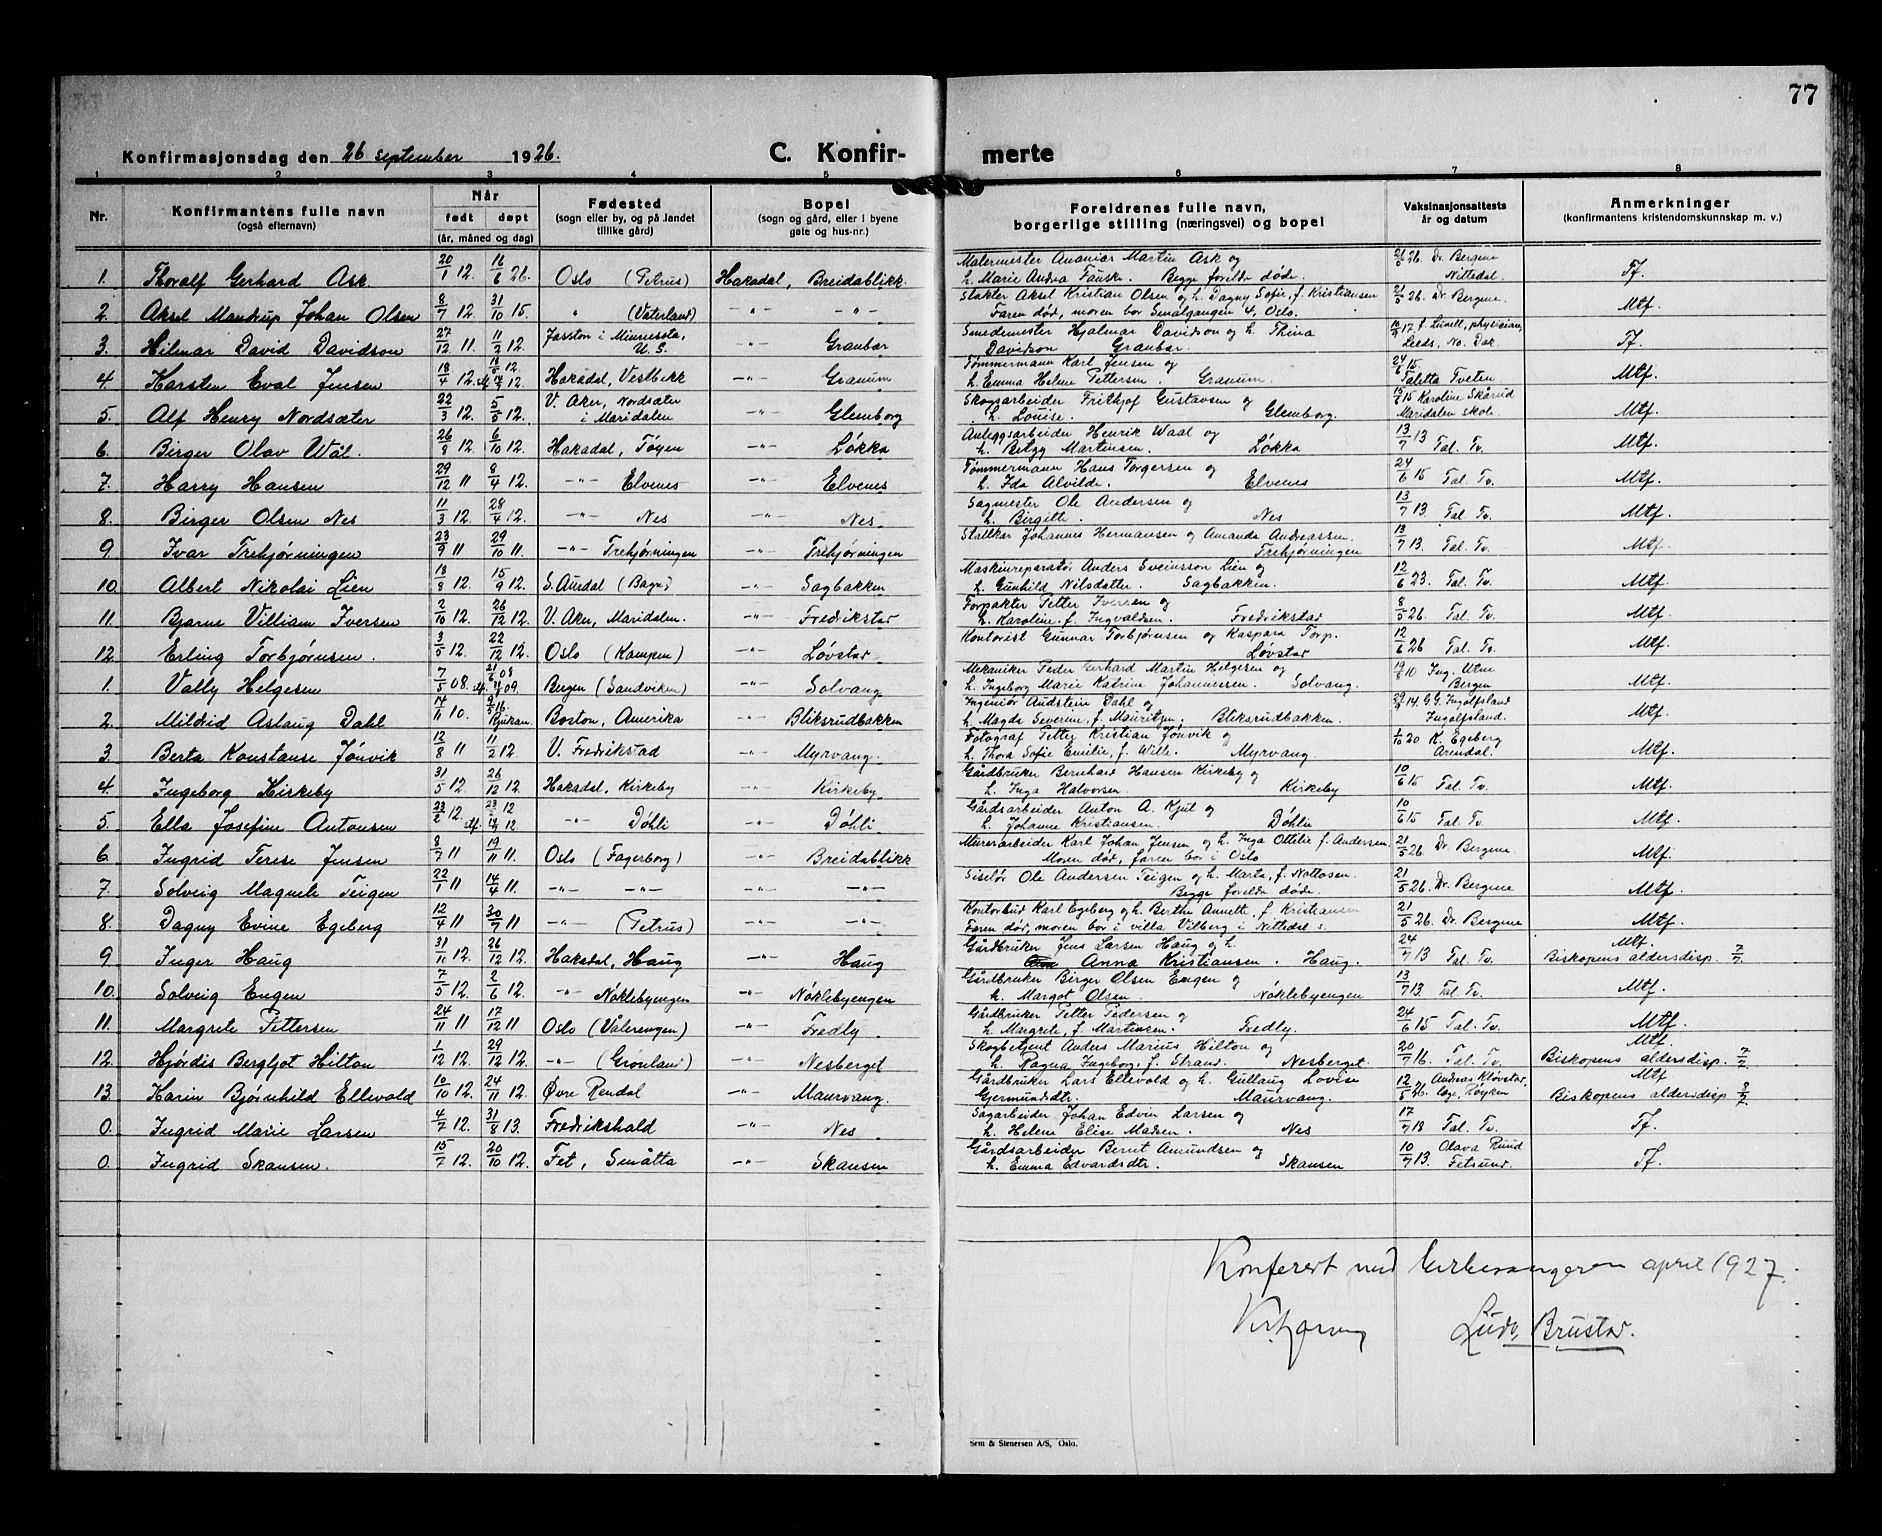 77
Konfirmasjonsdag den 26 september 1926. C. Konfir- merte
1 2 3 4 5 6 7 8
Nr. Konfirmantens fulle navn (også efternavn) Når født døpt (år, måned og dag) Fødested (sogn eller by, og på landet tillike gård) Bopel (sogn og gård, eller i byene gate og hus-nr.) Foreldrenes fulle navn, borgerlige stilling (næringsvei) og bopel Vaksinasjonsattests år og datum Anmerkninger (konfirmantens kristendomskunnskap m. v.)
1. Thoralf Gerhard Ask 20/1 12. 16/6 26. Oslo (Petrus) Hakadal, Breidablikk. Malermester Ananias Martin Ask og h. Marie Andrea Fauske. Begge foreldre døde. 26/5 26. Dr. Bergene Nittedal. Tf.
2. Aksel Mandrup Johan Olsen 8/7 12. 31/10 15. " (Vaterland) -"- -"- Slakter Aksel Kristian Olsen og h. Dagny Sofie, f. Kristiansen Faren død, moren bor Smålgangen 4, Oslo. 21/5 26. Dr. Bergene. Mtf.
3. Hilmar David Davidson 27/12 11. 11/2 12. Fosston i Minnesota, U. S. -"- Granbar Smedemester Hjalmar Davidson og h. Thina Davidson Granbar. 17. f. Lunell, physician, Leeds, No. Dak. Tf.
4. Karsten Eval Jensen 18/4 12. Hakadal, Vestbekk -"- Granum Tømmermann Karl Jensen og h. Emma Helene Pettersen. Granum. 24/6 15. Taletta Tveten Mtf.
5. Alf Henry Nordsæter 22/3 12. 5/5 12. V. Aker, Nordsæter i Maridalen -"- Glemborg Skogsarbeider Frithjof Gustavsen og h. Louise. Glemborg. 15/6 15 Karoline Skårud Maridalen skole Mtf.
6. Birger Olav Wål. 26/8 12. 6/10 12. Hakadal, Tøyen -"- Løkka Anleggsarbeider Henrik Waal og h. Betzy Martinsen. Løkka 13/7 13 Tal. Tv. Mtf.
7. Harry Hansen 29/12 11 8/4 12. -"- Elvenes -"- Elvenes Tømmermann Hans Torgersen og h. Ida Alvilde. Elvenes 24/6 15 Tal. Tv. Mtf.
8. Birger Olsen Nes 11/3 12. 28/4 12. -"- Nes -"- Nes. Sagmester Ole Andersen og h. Birgitte. Nes 13/7 13. Tal. Tv. Mtf.
9. Ivar Trehjørningen 23/9 11 29/10 11. -"- Trehjørningen -"- Trehjørningen Stallkar Johannes Hermansen og Amanda Andreassen. Trehjørningen 13/7 13. Tal. Tv. Mtf.
10. Albert Nikolai Lien 13/8 12. 15/9 12. S. Aurdal (Bagn) -"- Sagbakken Maskinreparatør Anders Sveinsson Lien og h. Gunhild Nilsdatter. Sagbakken. 12/6 23. Tal. Tv. Mtf.
11. Bjarne Villiam Iversen 2/10 12. 26/12 12. V. Aker, Maridalen. -"- Fredrikstad Forpakter Petter Iversen og h. Karoline f. Ingvaldsen. Fredrikstad 8/5 26. Tal. Tv. Mtf.
12. Erling Torbjørnsen. 3/5 12. 22/12 12. Oslo (Kampen) -"- Løvstad. Kontorist Gunnar Torbjørnsen og Kaspara Torp. Løvstad 12/6 26 Tal. Tv. Mtf.
1. Vally Helgesen 7/5 08. 21/6 08 Bergen (Sandviken) -"- Solvang Mekaniker Peder Gerhard Martin Helgesen og h. Ingeborg Marie Katrine Johannessen. Solvang. 19/8 10 Ing. Utne Bergen Mtf.
2. Mildrid Aslaug Dahl 14/11 10. 16. Rjukan. Boston, Amerika -"- Bliksrudbakken Ingeniør Audstein Dahl og h. Magda Severine, f. Mauritzen. Bliksrudbakken. 14. G.G. Ingolfsland Ingolfsland. Mtf.
3. Berta Konstanse Jønvik 12/8 11 11/2 12. V. Fredrikstad -"- Myrvang. Fotograf Petter Kristian Jønvik og h. Thora Sofie Emilie, f. Wille. Myrvang 1/10 20 K. Egeberg Arendal. Mtf.
4. Ingeborg Kirkeby 31/5 12. 26/12 12. Hakadal, Kirkeby -"- Kirkeby. Gårdbruker Bernhard Hansen Kirkeby og h. Inga Halvorsen Kirkeby 10/6 15 Tal. Tv. Mtf.
5. Ella Josefine Antonsen 23/2 12. -"- Døhli -"- Døhli Gårdsarbeider Anton A. Kjul og h. Johanne Kristiansen. Døhlin 10/6 15. Tal. Tv. Mtf.
6. Ingrid Terese Jensen 8/7 11 19/11 11. Oslo (Fagerborg) -"- Breidablikk Murerarbeider Karl Johan Jensen og h. Inga Ottilie f. Andersen. Moren død, faren bor i Oslo 21/5 26. Dr. Bergene. Mtf.
7. Solveig Magnete Teigen 22/1 11 14/4 11. -"- -"- -"- -"- Siselør Ole Andersen Teigen og h. Marta, f. Nottosen. Begge foreldre døde. 21/5 26. Dr. Bergene Mtf.
8. Dagny Evine Egeberg 12/4 11 30/7 11 -"- (Petrus) -"- -"- Kontorbud Karl Egeberg og h. Berthe Annette, f. Kristiansen Faren død, moren bor i villa Vilberg i Nittedal s. 21/5 26. Dr. Bergene Mtf.
9 Inger Haug 31/11 12. 26/12 12. Hakadal, Haug -"- Haug Gårdbruker Jens Larsen Haug og h. Anna Kristiansen. Haug. 24/7 13 Tal Tv. Mtf. Biskopens aldersdisp. 7/7.
10. Solveig Engen 7/5 12. 2/6 12. -"- Nøklebyengen -"- Nøklebyengen Gårdbruker Birger Olsen Engen og h. Margot Olsen. Nøklebyengen 13/7 13. Tal. Tv. Mtf.
11. Margrete Pettersen 24/11 11 17/12 11 Oslo (Vålerengen) -"- Fredly Gårdbruker Petter Pedersen og h. Margrete, f. Martinsen. Fredly. 24/6 15 Tal. Tv. Mtf.
12. Hjørdis Bergljot Hilton 1/12 12. 29/12 12. -"- (Grønland) -"- Nesberget Skogbetjent Anders Marius Hilton og h. Ragna Ingeborg f. Strand. Nesberget 20/7 16. Tal. Tv. Mtf. Biskopens aldersdisp. 7/7.
13. Karin Bjørnhild Ellevold 10/10 12. 24/11 12. Øvre Rendal -"- Maurvang. Gårdbruker Lars Ellevold og h. Gullaug Lovise Gjermundsdtr. Maurvang. 12/5 26. Andreas Kløvstad, lege, Røyken Mtf Biskopens aldersdisp
0. Ingrid Marie Larsen 4/7 12. 31/8 13. Fredrikshald -"- Nes Sagarbeider Johan Edvin Larsen og h. Helene Elise Madsen. Nes 17/7 18 Tal. Tv. Tf.
0. Ingrid Skansen. 15/7 12. 20/10 12. Fet, Småtta -"- Skansen Gårdsarbeider Bernt Amundsen og h. Emma Edvardsdtr. Skansen 10/7 13. Olava Ruud Fetsund. Tf.
Konferert med kirkesangeren april 1927.
Ludv. Brustad.
Sem & Stenersen A/S, Oslo.